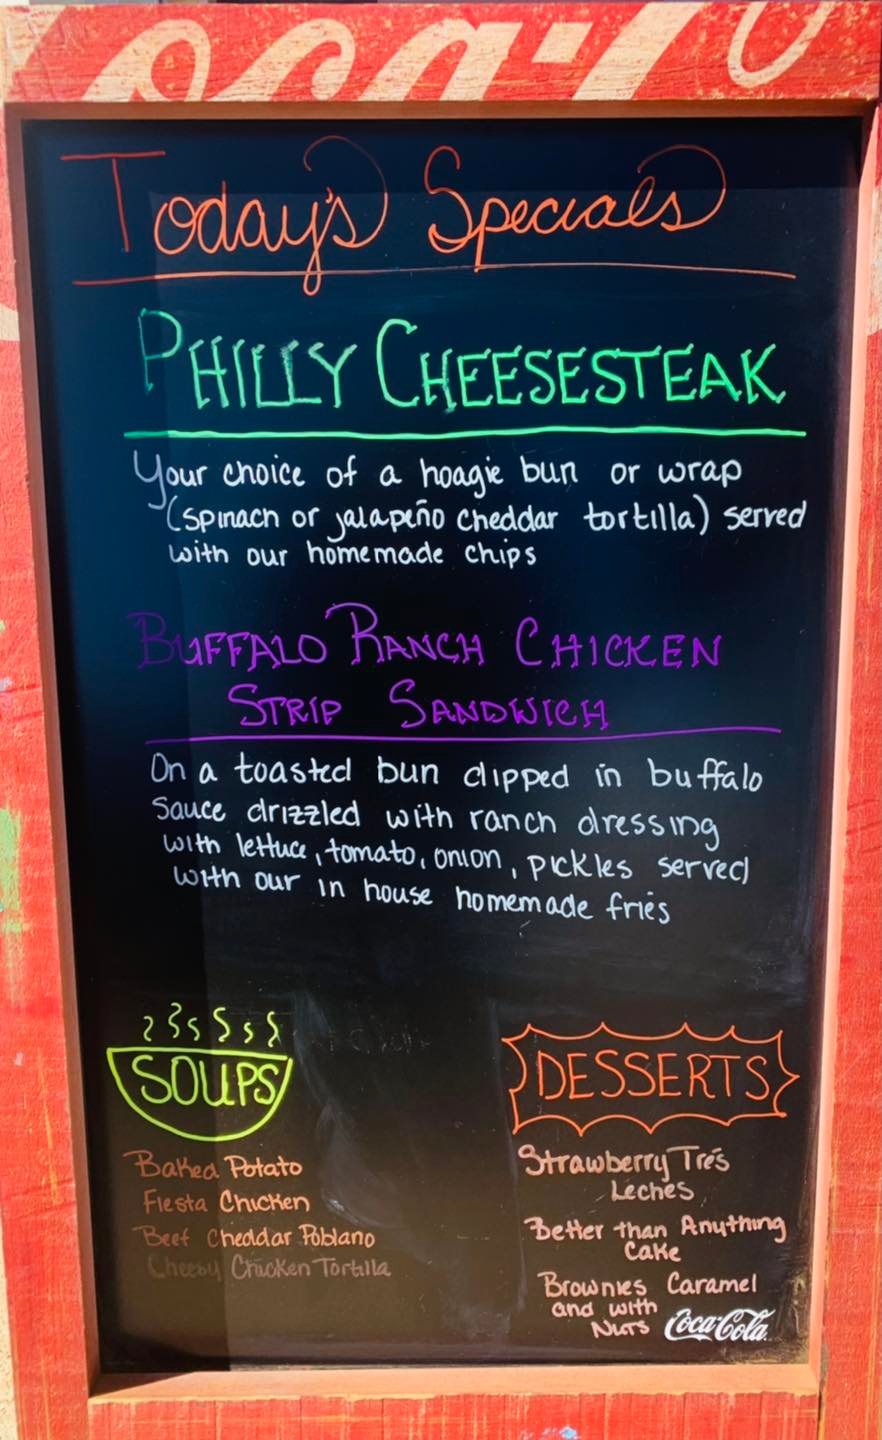 Coca-Co
Today's Specials
PHILLY CHEESESTEAK
Your choice of a hoagie bun or wrap
(spinach or jalapeño cheddar tortilla) served
with our homemade chips
BUFFALO RANCH CHICKEN
STRIP SANDWICH
On a toasted bun dipped in buffalo
Sauce drizzled with ranch dressing
with lettuce, tomato, onion, pickles served
with our in house homemade fries
SOUPS
Baked Potato
Fiesta Chicken
Beef Cheddar Poblano
Cheesy Chicken Tortilla
DESSERTS
Strawberry Trés
Leches
Better than Anything
Cake
Brownies Caramel
and with
Nuts
Coca-Cola